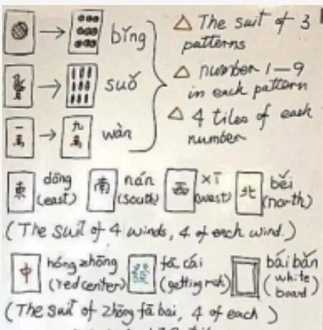 bǐng
△ The suit of 3
patterns
suǒ
△ number 1-9
in each pattern
一萬 → 九萬 wàn
△ 4 tiles of each
number
東 dōng
(east)
南 nán
(south)
西 xī
(west)
北 běi
(north)
(The suit of 4 winds, 4 of each wind.)
中 hóng zhōng
(red center)
發 fā cái
(getting rich)
bái bǎn
(white
board)
(The suit of zhōng fā bai, 4 of each)